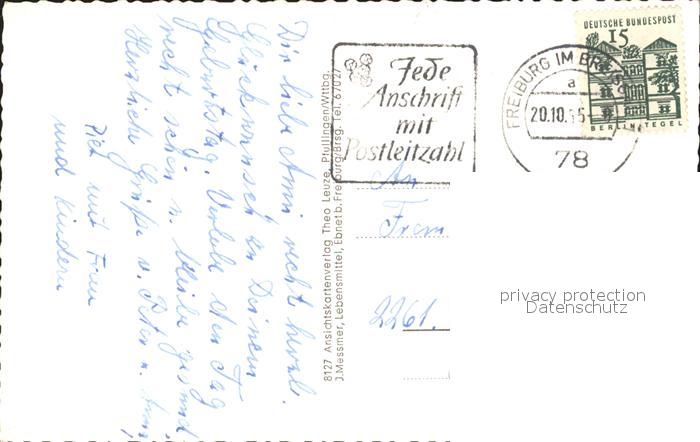 Dir liebe Anni recht herzl.
Glückwunsch zu Deinem
Geburtstag. Verlebe den Tag
recht schön u. bleibe gesund
Herzliche Grüße v. Peter u. Anni
Piet und Frau
und Kindern
8127 Ansichtskartenverlag Theo Leuze, Pfullingen/Wttbg.
J. Messmer, Lebensmittel, Ebnet b. Freiburg/Brsg. Tel. 67027
Jede
Anschrift
mit
Postleitzahl
FREIBURG IM
a
20.10.
78
DEUTSCHE BUNDESPOST
15
BERLIN TEGEL
An
Frem
2261.
privacy protection
Datenschutz